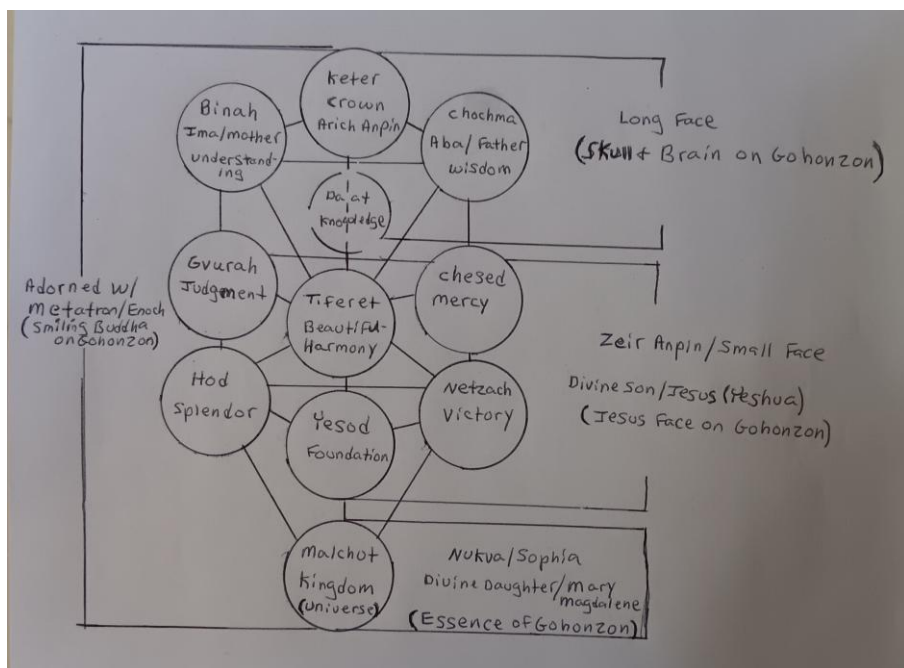 Keter
Crown
Arich Anpin
Binah
Ima/mother
understand-
ing
chochma
Aba/Father
wisdom
Long Face
(Skull + Brain on Gohonzon)
Da at
Knowledge
Gvurah
Judgment
chesed
mercy
Tiferet
Beautiful-
Harmony
Adorned w/
metatron/Enoch
(Smiling Buddha
on Gohonzon)
Zeir Anpin/Small Face
Divine Son/Jesus (Yeshua)
(Jesus Face on Gohonzon)
Hod
Splendor
Netzach
Victory
Yesod
Foundation
malchut
Kingdom
(universe)
Nukva/Sophia
Divine Daughter/mary
magdalene
(Essence of Gohonzon)